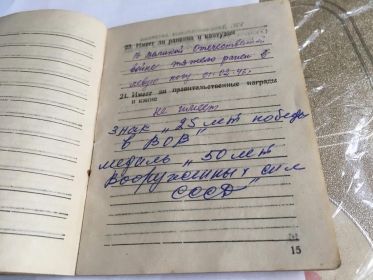 20. Имеет ли ранения и контузии
В великой отечественной
войне тяжело ранен в
левую ногу 02.45г.
21. Имеет ли правительственные награды
и какие
не имеет
Знак „25 лет победы
в ВОВ"
медаль „50 лет
Вооруженных сил
СССР"
15